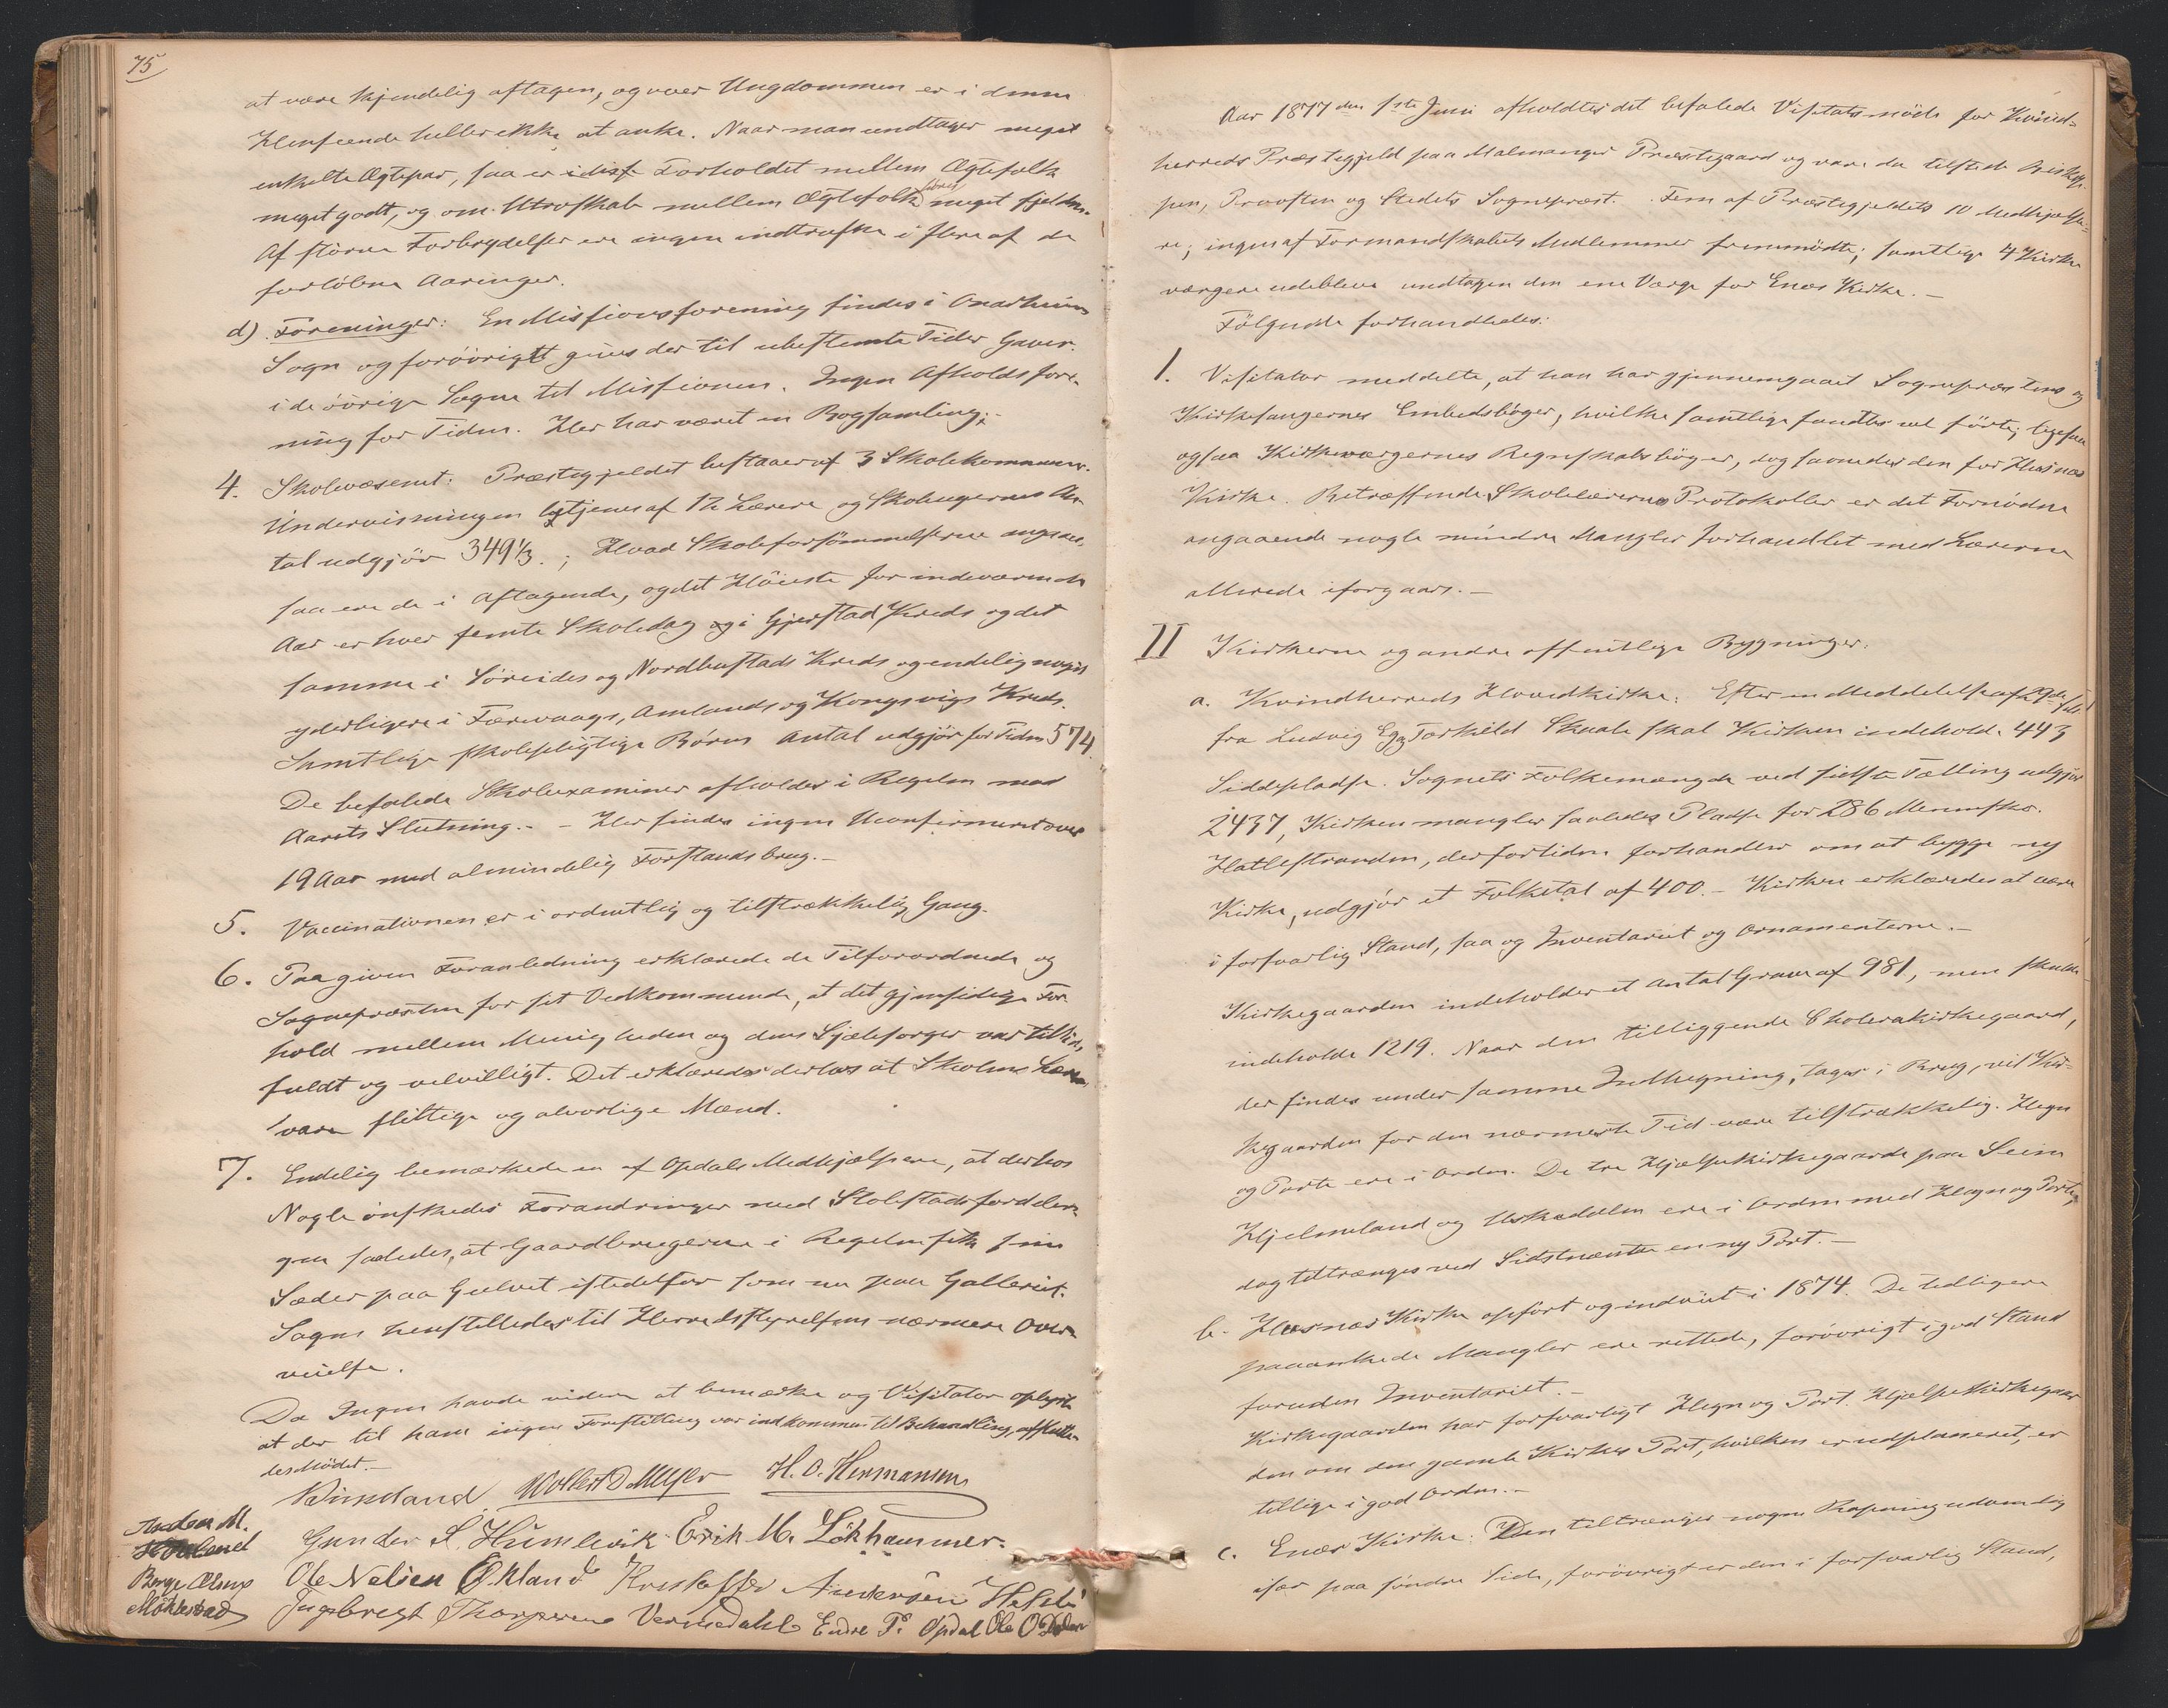 75
at være kjendelig aftagen, og over Ungdommen er i denne
Henseende heller ikke at anke. Naar man undtager meget
enkelte Ægtepar, saa er Forholdet mellem Ægtefolk
meget godt, og om Utroskab mellem Ægtefolk høres meget sjelden.
Af større Forbrydelser ere ingen indtrufne i flere af de
forløbne Aaringer.
d) Foreninger: En Missionsforening findes i Onarheims
Sogn og forøvrigt gives der til ubestemte Tider Gaver
i de øvrige Sogne til Missionen. Ingen Afholdsfore-
ning for Tiden. Her har været en Bogsamling.
4. Skolevæsenet: Præstegjeldet bestaaer af 3 Skolekommuner.
Undervisningen betjenes af 12 Lærere og Skoleugernes An-
tal udgjør 349 1/3.; Hvad Skoleforsømmelserne angaae,
saa ere de i Aftagende, og det Høieste for indeværende
Aar er hver femte Skoledag i Gjerstad Kreds og det
samme i Søreides og Nordhustads Kreds og endelig noget
yderligere i Færevaags, Amlands og Kongsvigs Kreds.
Samtlige skolepligtige Børns Antal udgjør for Tiden 574.
De befalede Skoleexaminer afholdes i Regelen mod
Aarets Slutning. - Her findes ingen Uconfirmeret over
19 Aar med almindelig Forstandsbrug. -
5. Vaccinationen er i ordentlig og tilstrækkelig Gang.
6. Paa given Foranledning erklærede de Tilforordnede og
Sognepræsten for sit Vedkommende, at det gjensidige For-
hold mellem Menigheden og dens Sjælesørger var tillids-
fuldt og velvilligt. Det erklæredes derhos at Skolens Lærere
vare flittige og alvorlige Mænd.
7. Endelig bemærkede en af Opdals Medhjælpere, at derhos
Nogle ønskedes Forandringer med Stolestadsfordelin-
gen saaledes, at Gaardbrugerne i Regelen fik sine
Sæder paa Gulvet istedetfor som nu paa Galleriet.
Sagen henstilledes til Herredsstyrelsens nærmere Over-
veielse.
Da Ingen havde videre at bemærke og Visitator oplyste
at der til ham ingen Forestilling var indkommen til Behandling, afslutte-
des Mødet. -
Wollert D Meyer H. O. Hermansen
Gunder S. Humlevik. Erik M. Løkhammer.
Ole Nelsen Økland Kristoffer Andersen
Ingebregt Vernedahl Endre P. Opdal Ole O
Anders M.
Børge Olsen
Møklestad
Aar 1877 den 1ste Juni afholdtes det befalede Visitatsmøde for Kvind-
herreds Præstegjeld paa Malmanger Præstegaard og vare da tilstede Bisko-
pen, Provsten og Stedets Sognepræst. Fem af Præstegjeldets 10 Medhjælpe-
re; ingen af Formandskabets Medlemmer fremmødte; samtlige 4 Kirke
værgere udebleve undtagen den ene Værge for Enæs Kirke. -
Følgende forhandledes:
1. Visitator meddelte, at han har gjennemgaaet Sognepræstens og
Kirkesangernes Embedsbøger, hvilke samtlige fandtes vel førte; ligesaa
ogsaa Kirkeværgernes Regnskabsbøger, dog savnedes den for Husnæs
Kirke. Betræffende Skolelærernes Protokoller er det Fornødne
angaaende nogle mindre Mangler forhandlet med Lærerne
allerede iforgaars. -
II Kirkerne og andre offentlige Bygninger.
a. Kvindherreds Hovedkirke: Efter en Meddelelse af
fra Ludvig Eg Torkild Skaale skal Kirken indeholde 443
Siddepladse. Sognets Folkemængde ved sidste Tælling udgjør
2437, Kirken mangler saaledes Pladse for 286 Mennesker.
Hatlestranden, der for tiden forhandler om at bygge ny
Kirke, udgjør et Folketal af 400. - Kirken erklæredes at være
i forsvarlig Stand, saa og Inventariet og Ornamenterne. -
Kirkegaarden indeholder et Antal Grave af 981, men skulde
indeholde 1219. Naar den tilliggende Cholerakirkegaard,
der findes under samme Indhegning, tages i Brug, vil Kir-
kegaarden for den nærmeste Tid være tilstrækkelig. Hegn
og Porte ere i Orden. De tre Hjælpekirkegaarde paa Seim
Hjelmeland og Uskedalen ere i Orden med Hegn og Porte,
dog tiltrænges ved Sidstnævnte en ny Port. -
b. Husnæs Kirke opført og indviet i 1874. De tidligere
paaankede Mangler ere rettede, forøvrigt i god Stand
foruden Inventariet. -
Kirkegaarden har forsvarligt Hegn og Port. Hjælpekirkegaar-
den om den gamle Kirkes Port, hvilken er udplaneret, er
tillige i god Orden. -
c. Enæs Kirke: Den tiltrænger nogen Rapning udvendig
især paa søndre Side, forøvrigt er den i forsvarlig Stand,